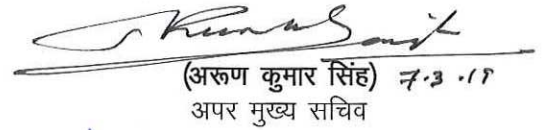 (अरूण कुमार सिंह) 7.3.19
अपर मुख्य सचिव